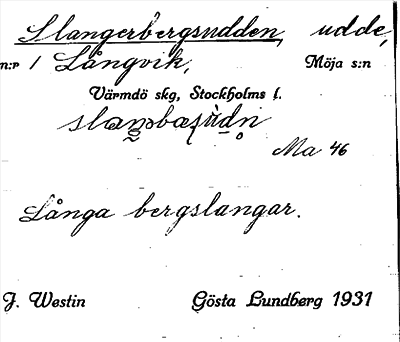 Slangerbergsudden, udde,
n:r 1 Långvik, Möja s:n
Värmdö skg, Stockholms l.
Ma 46
Långa bergslangar.
J. Westin Gösta Lundberg 1931